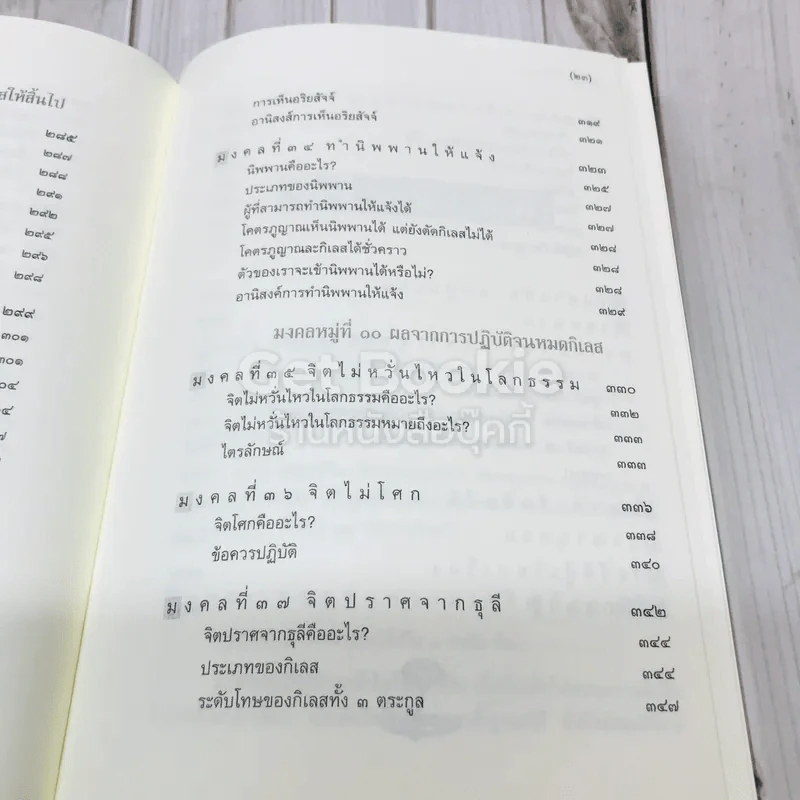 สให้สิ้นไป
๒๘๕
๒๘๗
๒๘๘
๒๙๑
๒๙๒
๒๙๕
๒๙๖
๒๙๘
๒๙๙
๓๐๑
๓๐๑
(๒๓)
การเห็นอริยสัจจ์
อานิสงส์การเห็นอริยสัจจ์ ๓๑๙
มงคลที่ ๓๔ ทำนิพพานให้แจ้ง ๓๒๑
นิพพานคืออะไร? ๓๒๓
ประเภทของนิพพาน ๓๒๕
ผู้ที่สามารถทำนิพพานให้แจ้งได้ ๓๒๗
โคตรภูญาณเห็นนิพพานได้ แต่ยังตัดกิเลสไม่ได้ ๓๒๗
โคตรภูญาณละกิเลสได้ชั่วคราว ๓๒๘
ตัวของเราจะเข้านิพพานได้หรือไม่? ๓๒๘
อานิสงค์การทำนิพพานให้แจ้ง ๓๒๙
มงคลหมู่ที่ ๑๐ ผลจากการปฏิบัติจนหมดกิเลส
มงคลที่ ๓๕ จิตไม่หวั่นไหวในโลกธรรม ๓๓๐
จิตไม่หวั่นไหวในโลกธรรมคืออะไร? ๓๓๒
จิตไม่หวั่นไหวในโลกธรรมหมายถึงอะไร? ๓๓๓
ไตรลักษณ์ ๓๓๓
มงคลที่ ๓๖ จิตไม่โศก ๓๓๖
จิตโศกคืออะไร? ๓๓๘
ข้อควรปฏิบัติ ๓๔๐
มงคลที่ ๓๗ จิตปราศจากธุลี ๓๔๒
จิตปราศจากธุลีคืออะไร? ๓๔๔
ประเภทของกิเลส ๓๔๔
ระดับโทษของกิเลสทั้ง ๓ ตระกูล ๓๔๗
Get Bookie
ร้านหนังสือบุ๊คกี้